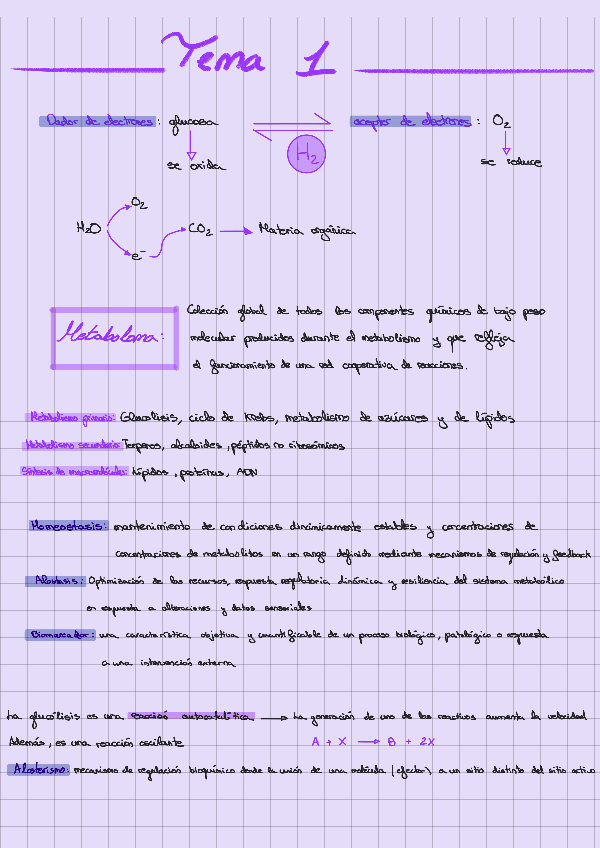 Tema 1
Dador de electrones: glucosa
aceptor de electrones: O2
H2
se oxida
se reduce
O2
H2O
CO2 → Materia orgánica
e-
Metaboloma:
Colección global de todos los componentes químicos de bajo peso
molecular producidos durante el metabolismo y que refleja
el funcionamiento de una red cooperativa de reacciones.
Metabolismo primario: Glucolisis, ciclo de Krebs, metabolismo de azúcares y de lípidos
Metabolismo secundario: Terpenos, alcaloides, péptidos no ribosómicos
Síntesis de macromoléculas: Lípidos, proteínas, ADN
Homeostasis: mantenimiento de condiciones dinámicamente estables y concentraciones de
concentraciones de metabolitos en un rango definido mediante mecanismos de regulación y feedback
Alostasis: Optimización de los recursos, respuesta regulatoria dinámica y resiliencia del sistema metabólico
en respuesta a alteraciones y datos sensoriales
Biomarcador: una característica objetiva y cuantificable de un proceso biológico, patológico o respuesta
a una intervención externa
La glucólisis es una reacción autocatalítica → La generación de uno de los reactivos aumenta la velocidad
Además, es una reacción oscilante
A + X → B + 2X
Alosterismo: mecanismo de regulación bioquímico donde la unión de una molécula (efector) a un sitio distinto del sitio activo